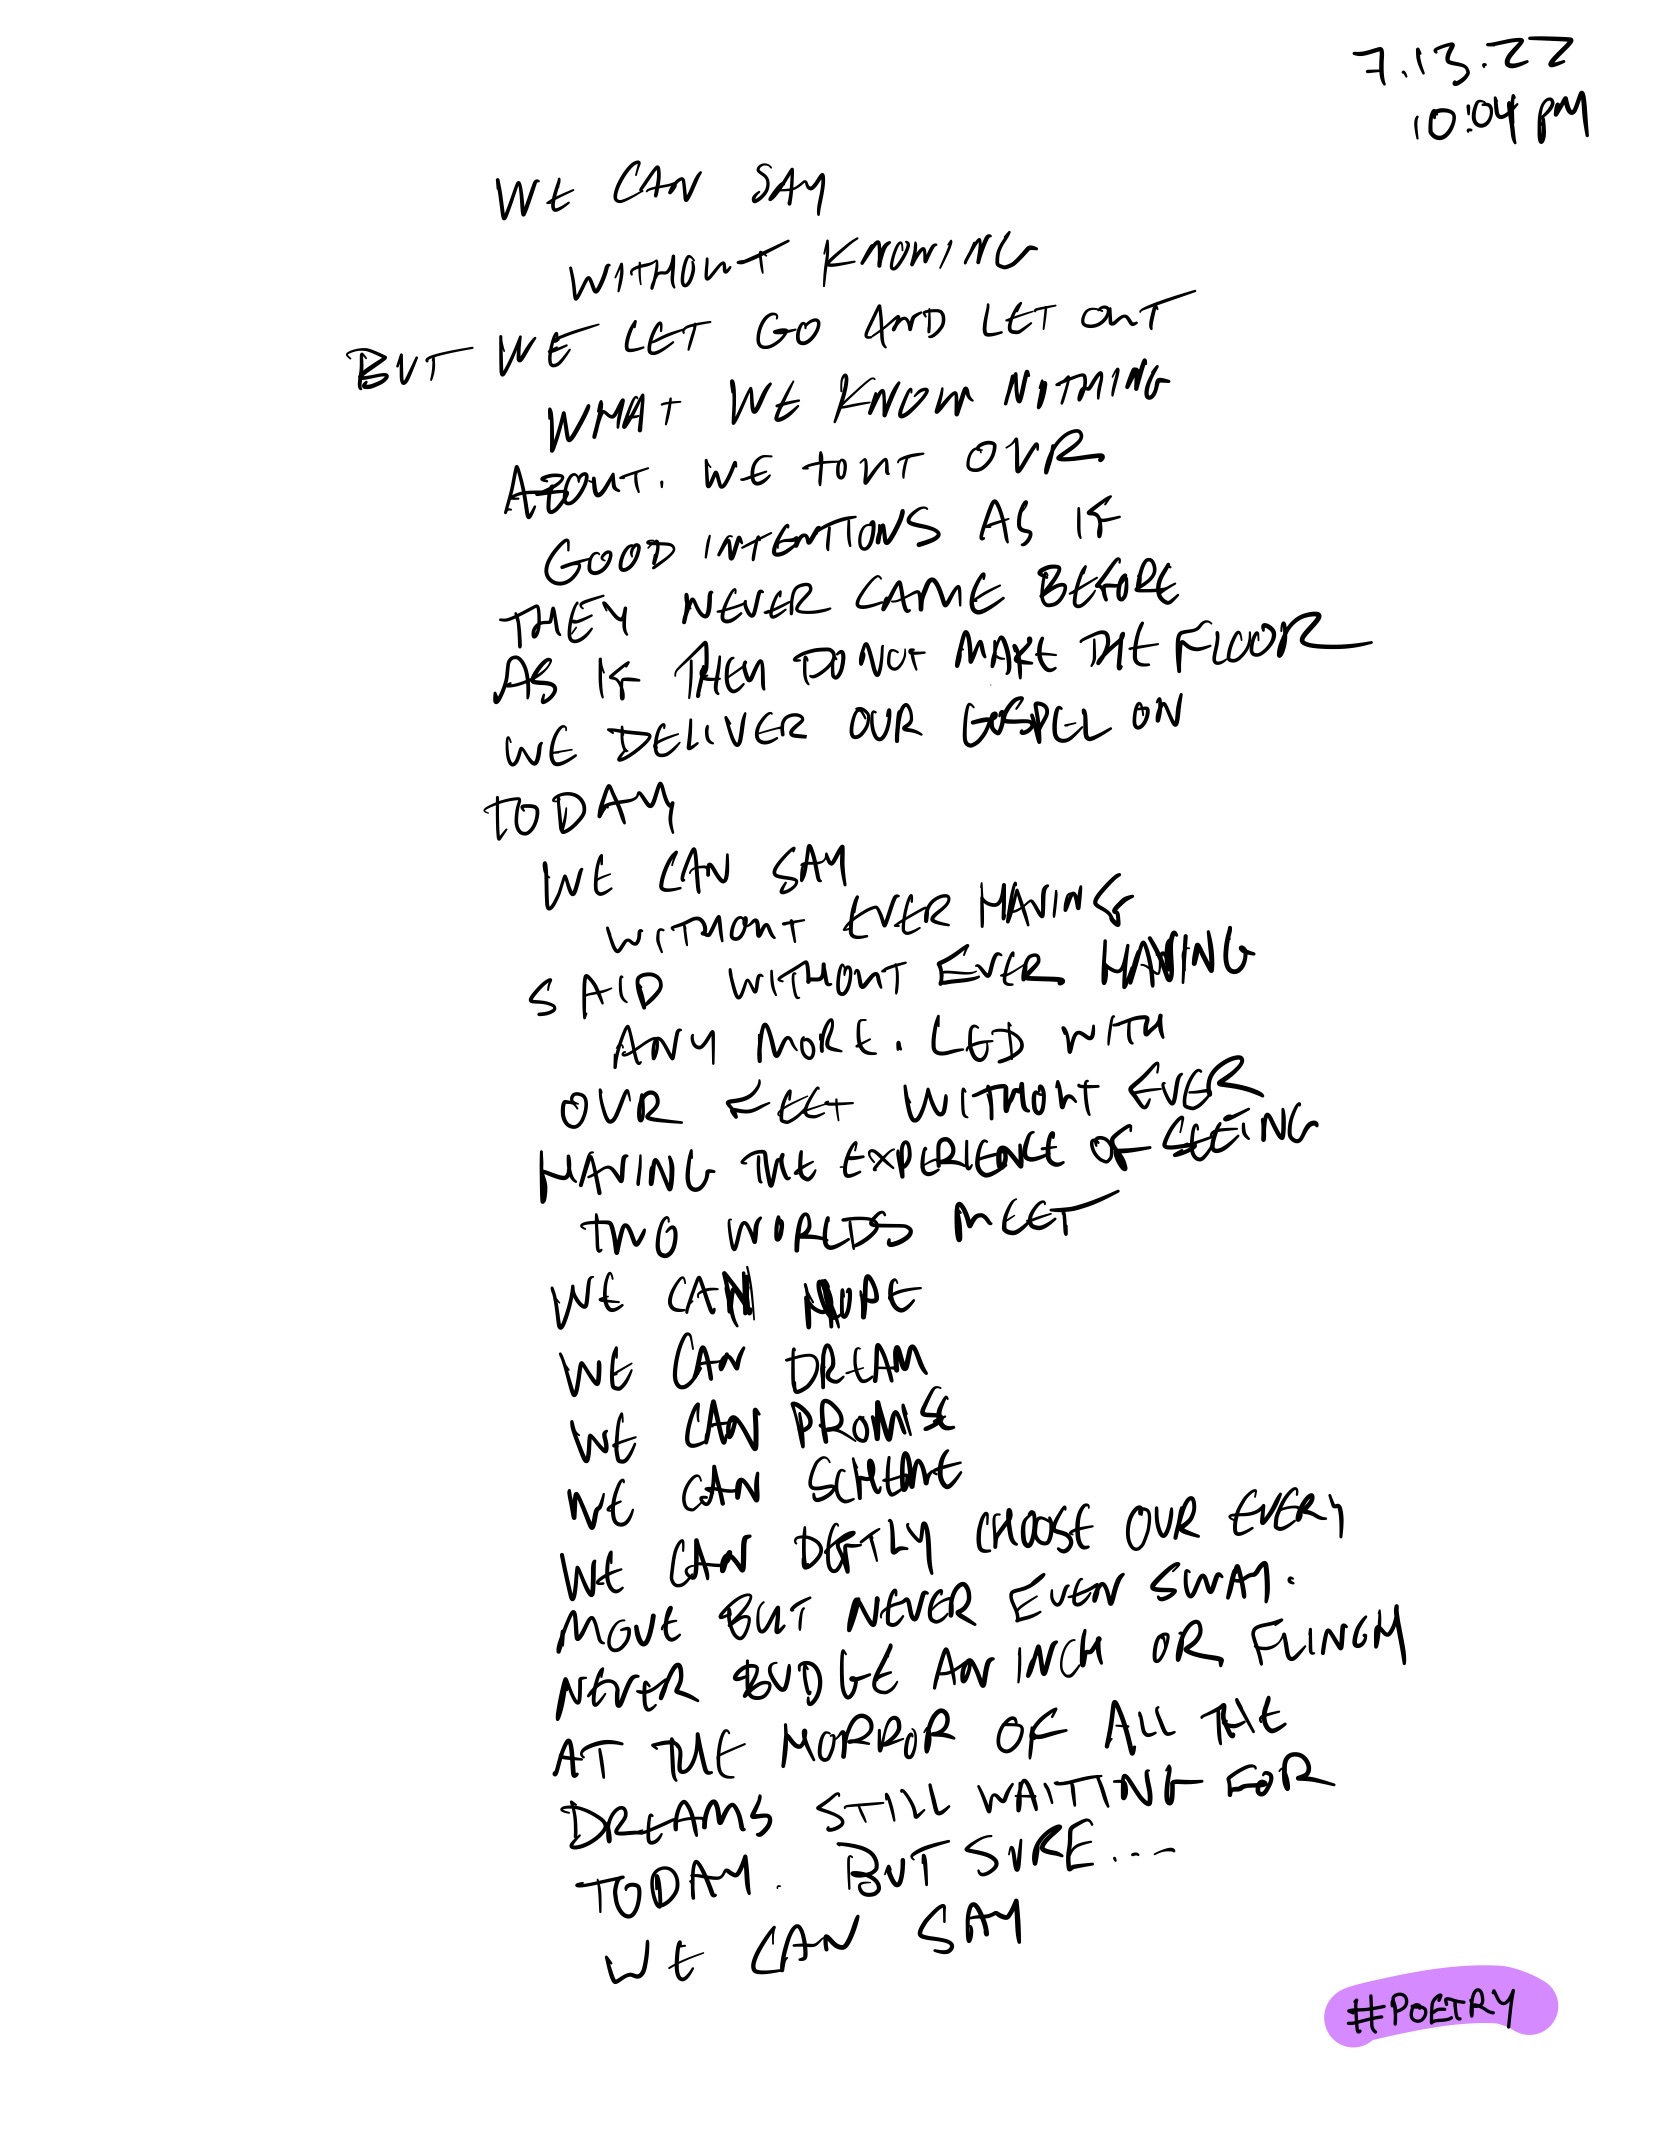 7.13.22
10:04 PM
WE CAN SAY
WITHOUT KNOWING
BUT WE LET GO AND LET OUT
WHAT WE KNOW NOTHING
ABOUT. WE TOUT OUR
GOOD INTENTIONS AS IF
THEY NEVER CAME BEFORE
AS IF THEY DO NOT MAKE THE FLOOR
WE DELIVER OUR GOSPEL ON
TODAY
WE CAN SAY
WITHOUT EVER HAVING
SAID WITHOUT EVER HAVING
ANY MORE. LED WITH
OUR FEET WITHOUT EVER
HAVING THE EXPERIENCE OF SEEING
TWO WORLDS MEET
WE CAN HOPE
WE CAN DREAM
WE CAN PROMISE
WE CAN SCHEME
WE CAN DEFTLY CHOOSE OUR EVERY
MOVE BUT NEVER EVEN SWAY.
NEVER BUDGE AN INCH OR FLINCH
AT THE HORROR OF ALL THE
DREAMS STILL WAITING FOR
TODAY. BUT SURE...
WE CAN SAY
#POETRY